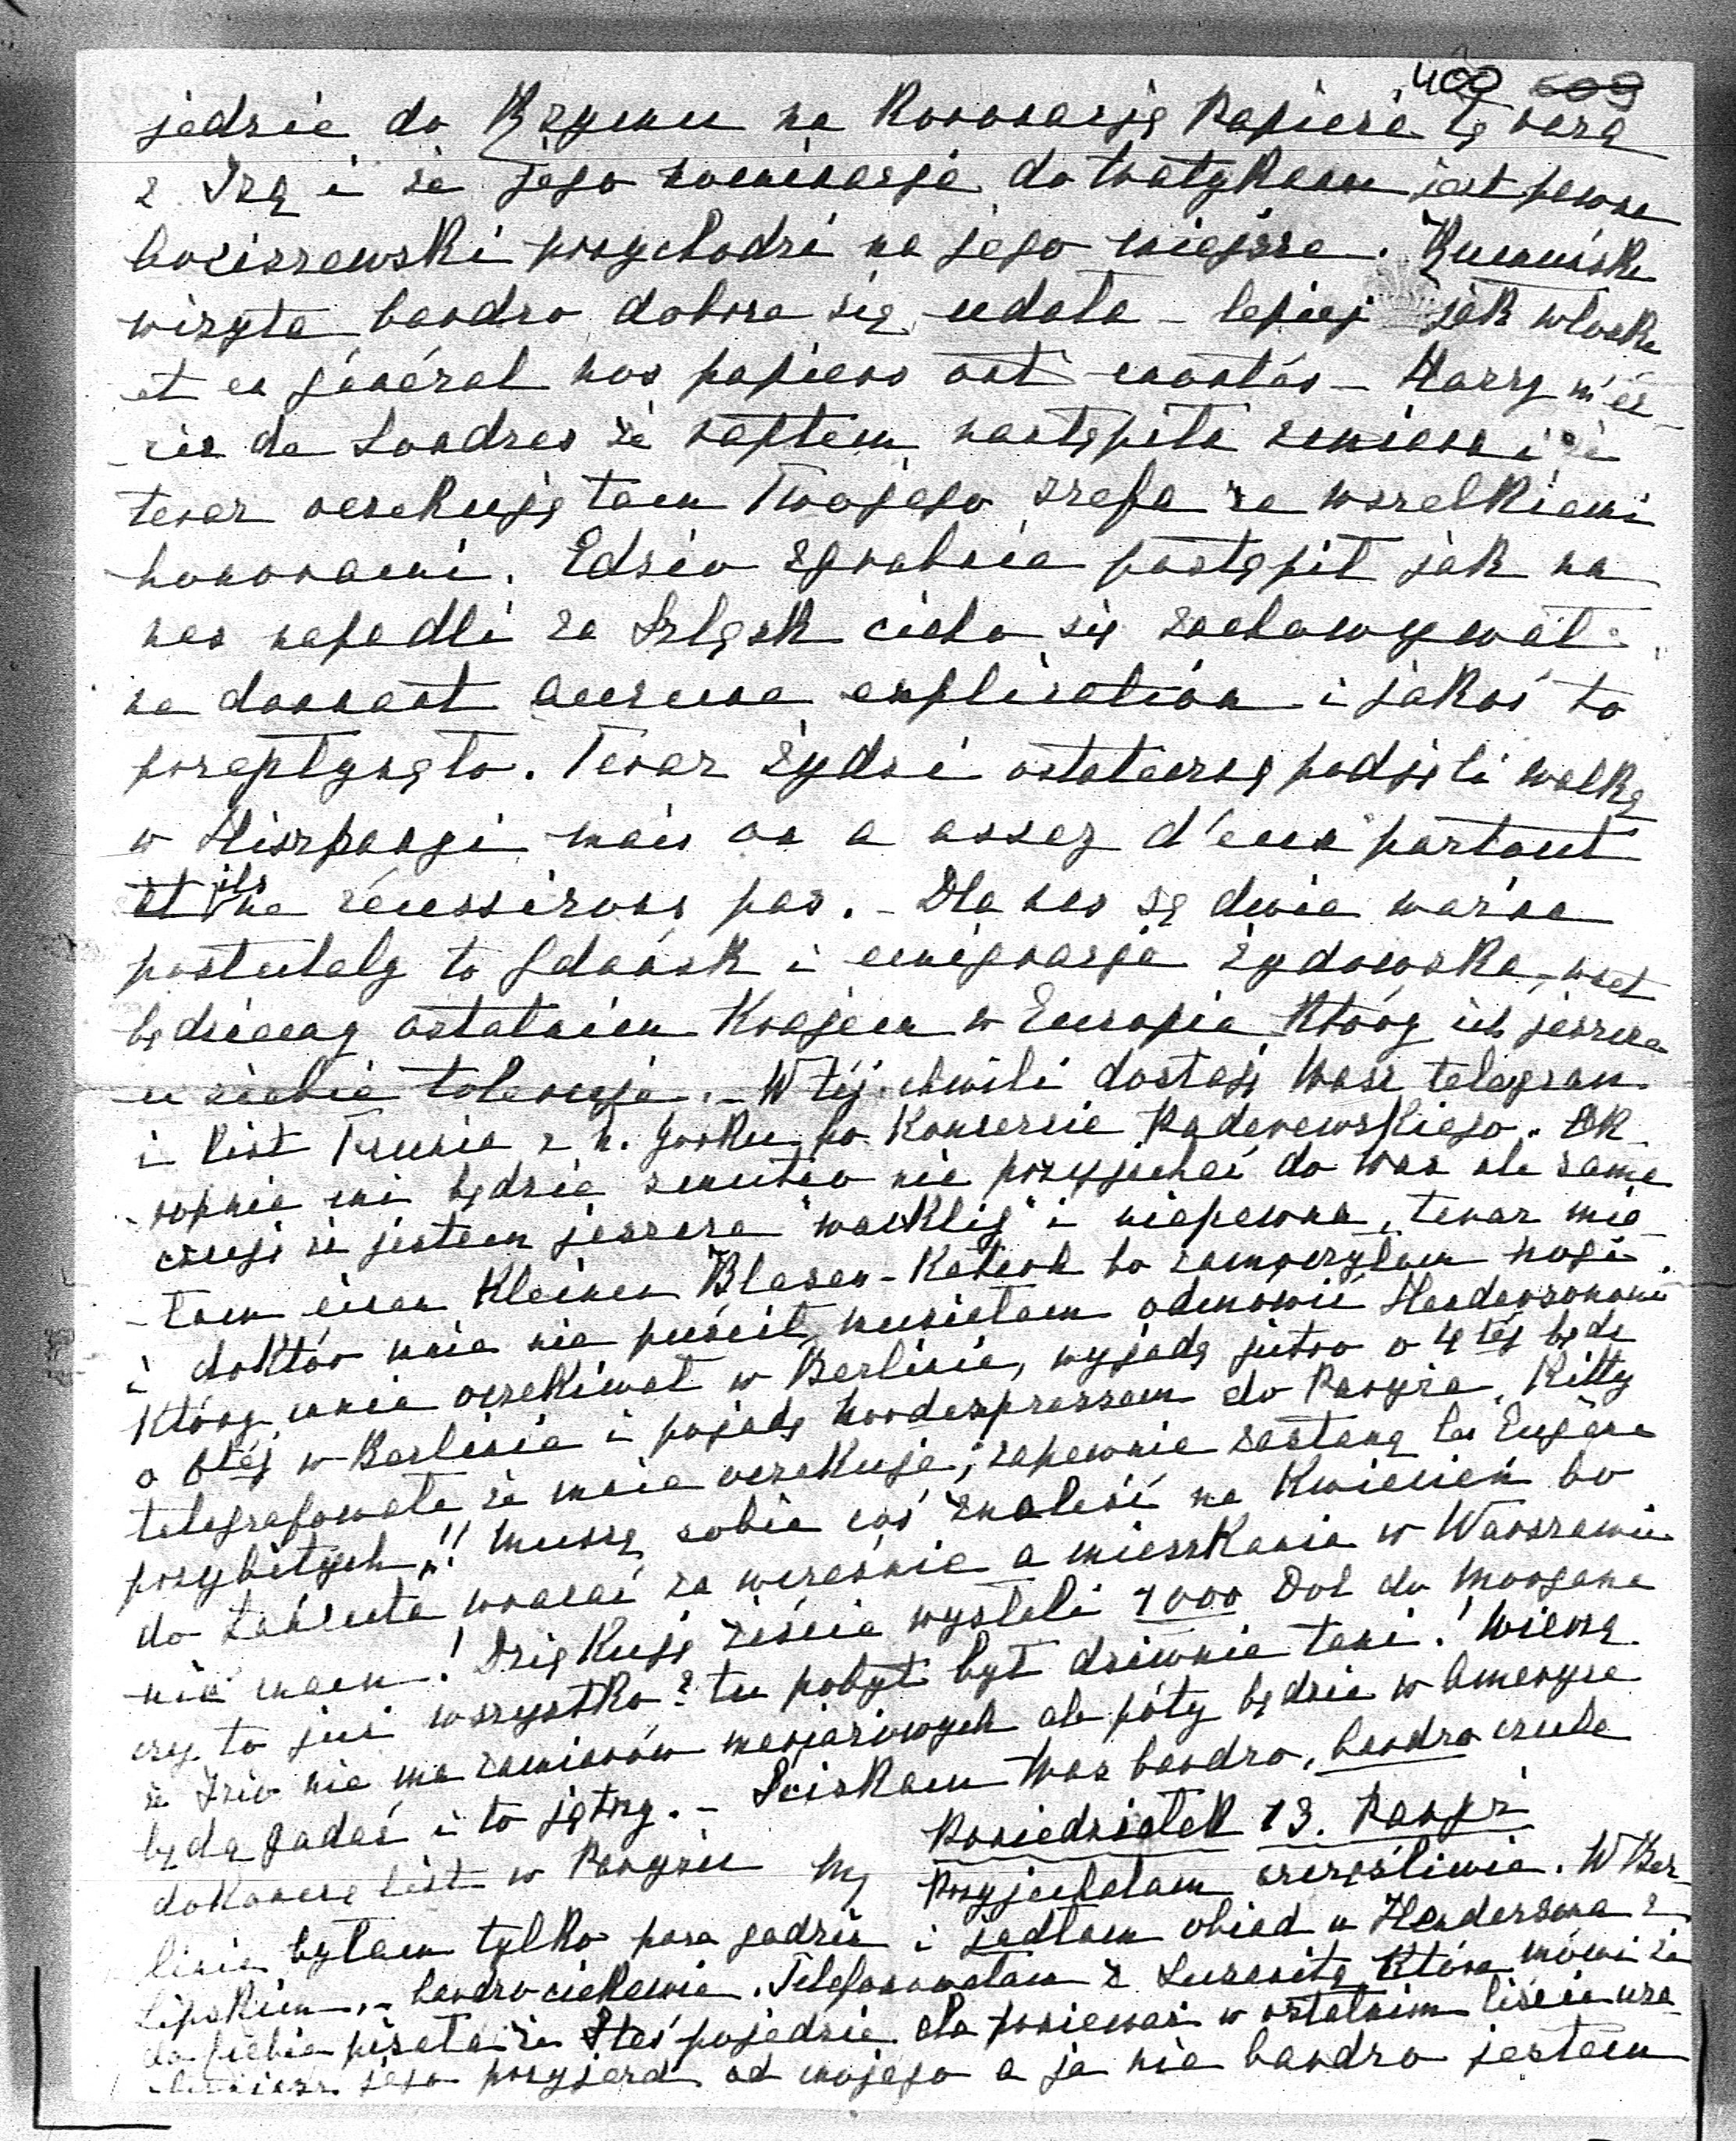 400 609
jedzie do Rzymu na Koronację Papieża tą razą
z Izą i że jego nominacja do Watykanu jest pewna
Arciszewski przychodzi na jego miejsce. Rumuńska
wizyta bardzo dobrze się udała – lepiej jak włoska
et en général nos papiers ont montés – Harry m'éc-
-rit de Londres że raptem nastąpiła zmiana i że
teraz oczekują tam Twojego szefa ze wszelkiemi
honorami. Edzio zgrabnie postąpił jak na
nas napadli za Szląsk cicho się zachowywał
ne donnant aucune explication i jakoś to
przepłynęło. Teraz żydzi ostateczną podjęli walkę
w Hiszpanji mais on a assez d'eux partout
et ils ne réussirons pas. – Dla nas są dwie ważne
postulaty to Gdańsk i emigracja żydowska,
będziemy ostatnim Krajem w Europie Który ich jeszcze
u siebie toleruje. – W téj chwili dostaję Wasz telegram
i list Trusia z N. Jorku po Koncercie Paderewskiego. Ok-
-ropnie mi będzie smutno nie przyjechać do Was ale sama
czuję że jestem jeszcze "wacklig" i niepewna, teraz mia-
-łam einen Kleinen Blasen-Katarrh bo zamoczyłam nogi
i doktór mnie nie puścił, musiałam odmówić Hendersonowi
Który mnie oczekiwał w Berlinie, wyjadę jutro o 4 téj będę
o 8 téj w Berlinie i pojadę Nordexpressem do Paryża, Kitty
telegrafowała że mnie oczekuje, zapewnie zastanę les Eugène
przybitych!! Muszę sobie coś znaleść na Kwiecień bo
do Łańcuta wracać za wcześnie a mieszkania w Warszawie
nie mam! Dziękuję żeście wysłali 7000 Dol do Morgana
czy to już wszystko? tu pobyt był dziwnie tani! Wierzę
że Izio nie ma zamiarów marjażowych ale póty będzie w Ameryce
będą gadać i to jątrzy. – Ściskam Was bardzo, bardzo czule
dokończę list w Paryżu My Poniedziałek 13. Paryż
Przyjechałam szczęśliwie. W Ber-
linie byłam tylko parę godzin i jadłam obiad u Hendersona z
Lipskim. – bardzo ciekawie. Telefonowałam z Susanitą Która mówi że
do Ciebie pisała że Staś pojedzie ale ponieważ w ostatnim liście uza-
jego przyjazd od mojego a ja nie bardzo jestem